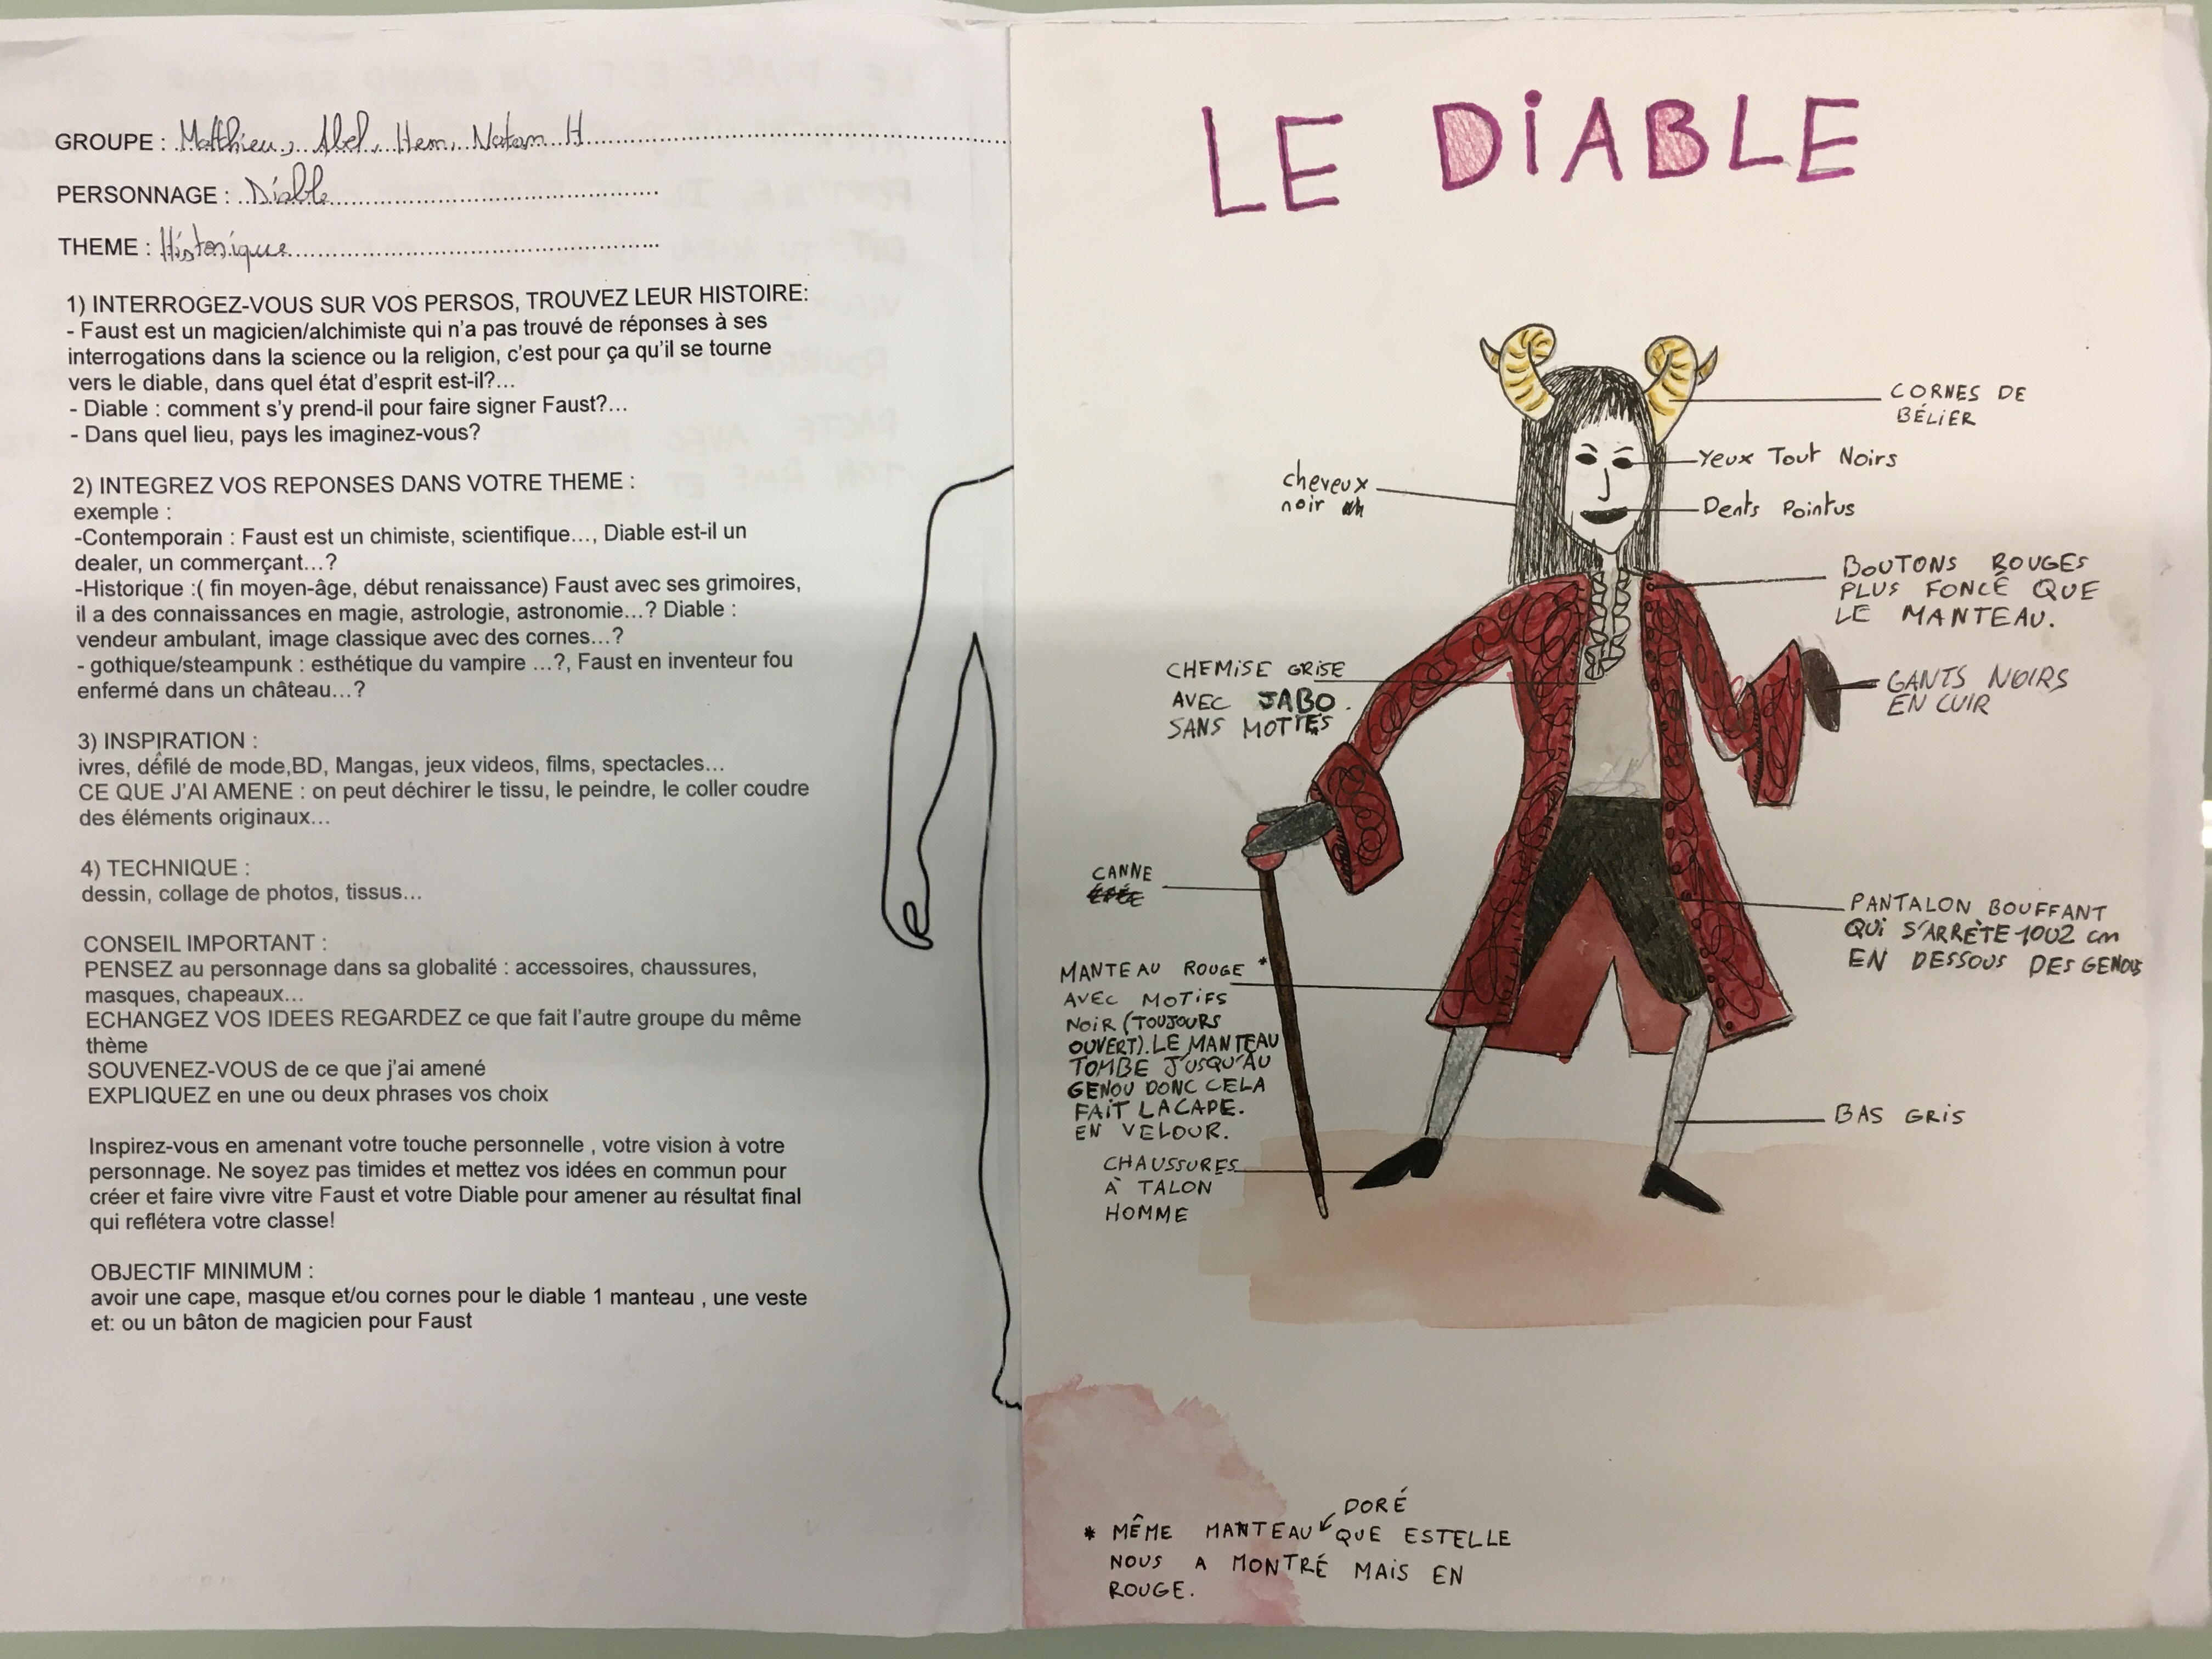 GROUPE : Matthieu, Abel, Hem, Natan H
PERSONNAGE : Diable
THEME : Historique
1) INTERROGEZ-VOUS SUR VOS PERSOS, TROUVEZ LEUR HISTOIRE:
- Faust est un magicien/alchimiste qui n'a pas trouvé de réponses à ses
interrogations dans la science ou la religion, c'est pour ça qu'il se tourne
vers le diable, dans quel état d'esprit est-il?...
- Diable : comment s'y prend-il pour faire signer Faust?...
- Dans quel lieu, pays les imaginez-vous?
2) INTEGREZ VOS REPONSES DANS VOTRE THEME :
exemple :
-Contemporain : Faust est un chimiste, scientifique..., Diable est-il un
dealer, un commerçant...?
-Historique :( fin moyen-âge, début renaissance) Faust avec ses grimoires,
il a des connaissances en magie, astrologie, astronomie...? Diable :
vendeur ambulant, image classique avec des cornes...?
- gothique/steampunk : esthétique du vampire ...?, Faust en inventeur fou
enfermé dans un château...?
3) INSPIRATION :
ivres, défilé de mode,BD, Mangas, jeux videos, films, spectacles...
CE QUE J'AI AMENE : on peut déchirer le tissu, le peindre, le coller coudre
des éléments originaux...
4) TECHNIQUE :
dessin, collage de photos, tissus...
CONSEIL IMPORTANT :
PENSEZ au personnage dans sa globalité : accessoires, chaussures,
masques, chapeaux...
ECHANGEZ VOS IDEES REGARDEZ ce que fait l'autre groupe du même
thème
SOUVENEZ-VOUS de ce que j'ai amené
EXPLIQUEZ en une ou deux phrases vos choix
Inspirez-vous en amenant votre touche personnelle , votre vision à votre
personnage. Ne soyez pas timides et mettez vos idées en commun pour
créer et faire vivre vitre Faust et votre Diable pour amener au résultat final
qui reflétera votre classe!
OBJECTIF MINIMUM :
avoir une cape, masque et/ou cornes pour le diable 1 manteau , une veste
et: ou un bâton de magicien pour Faust
LE DIABLE
CORNES DE
BÉLIER
Yeux Tout Noirs
cheveux
noir
Dents Pointus
BOUTONS ROUGES
PLUS FONCÉ QUE
LE MANTEAU.
CHEMISE GRISE
AVEC JABO.
SANS MOTTES
GANTS NOIRS
EN CUIR
CANNE
ÉPÉE
PANTALON BOUFFANT
QUI S'ARRÈTE 1OU2 cm
EN DESSOUS DES GENOUS
MANTEAU ROUGE *
AVEC MOTIFS
NOIR (TOUJOURS
OUVERT). LE MANTEAU
TOMBE J'USQU'AU
GENOU DONC CELA
FAIT LACAPE.
EN VELOUR.
BAS GRIS
CHAUSSURES
À TALON
HOMME
DORÉ
* MÊME MANTEAU QUE ESTELLE
NOUS A MONTRÉ MAIS EN
ROUGE.